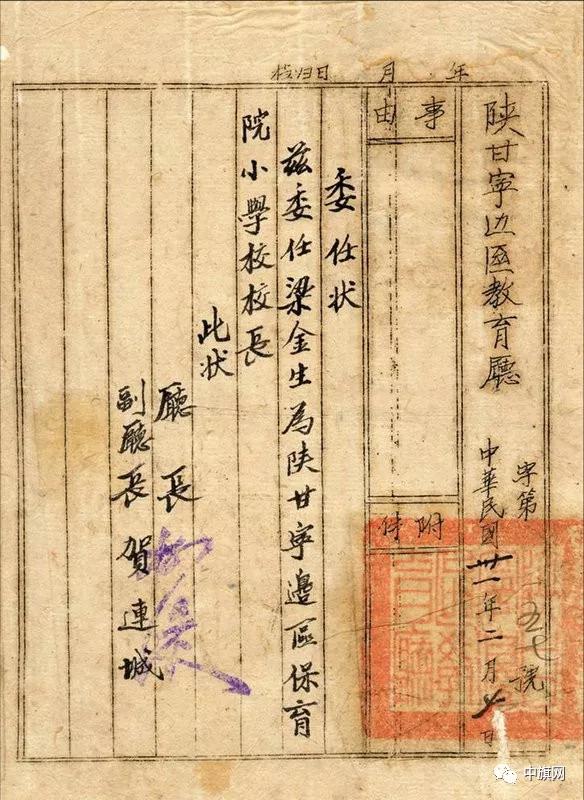 年 月 日归档
陕甘寧边區教育廳
字第一五七號
中華民國卅一年二月 日
事由
附件
委任状
兹委任梁金生為陕甘寧邊區保育
院小學校校長
此状
廳長
副廳長賀連城
中旗网